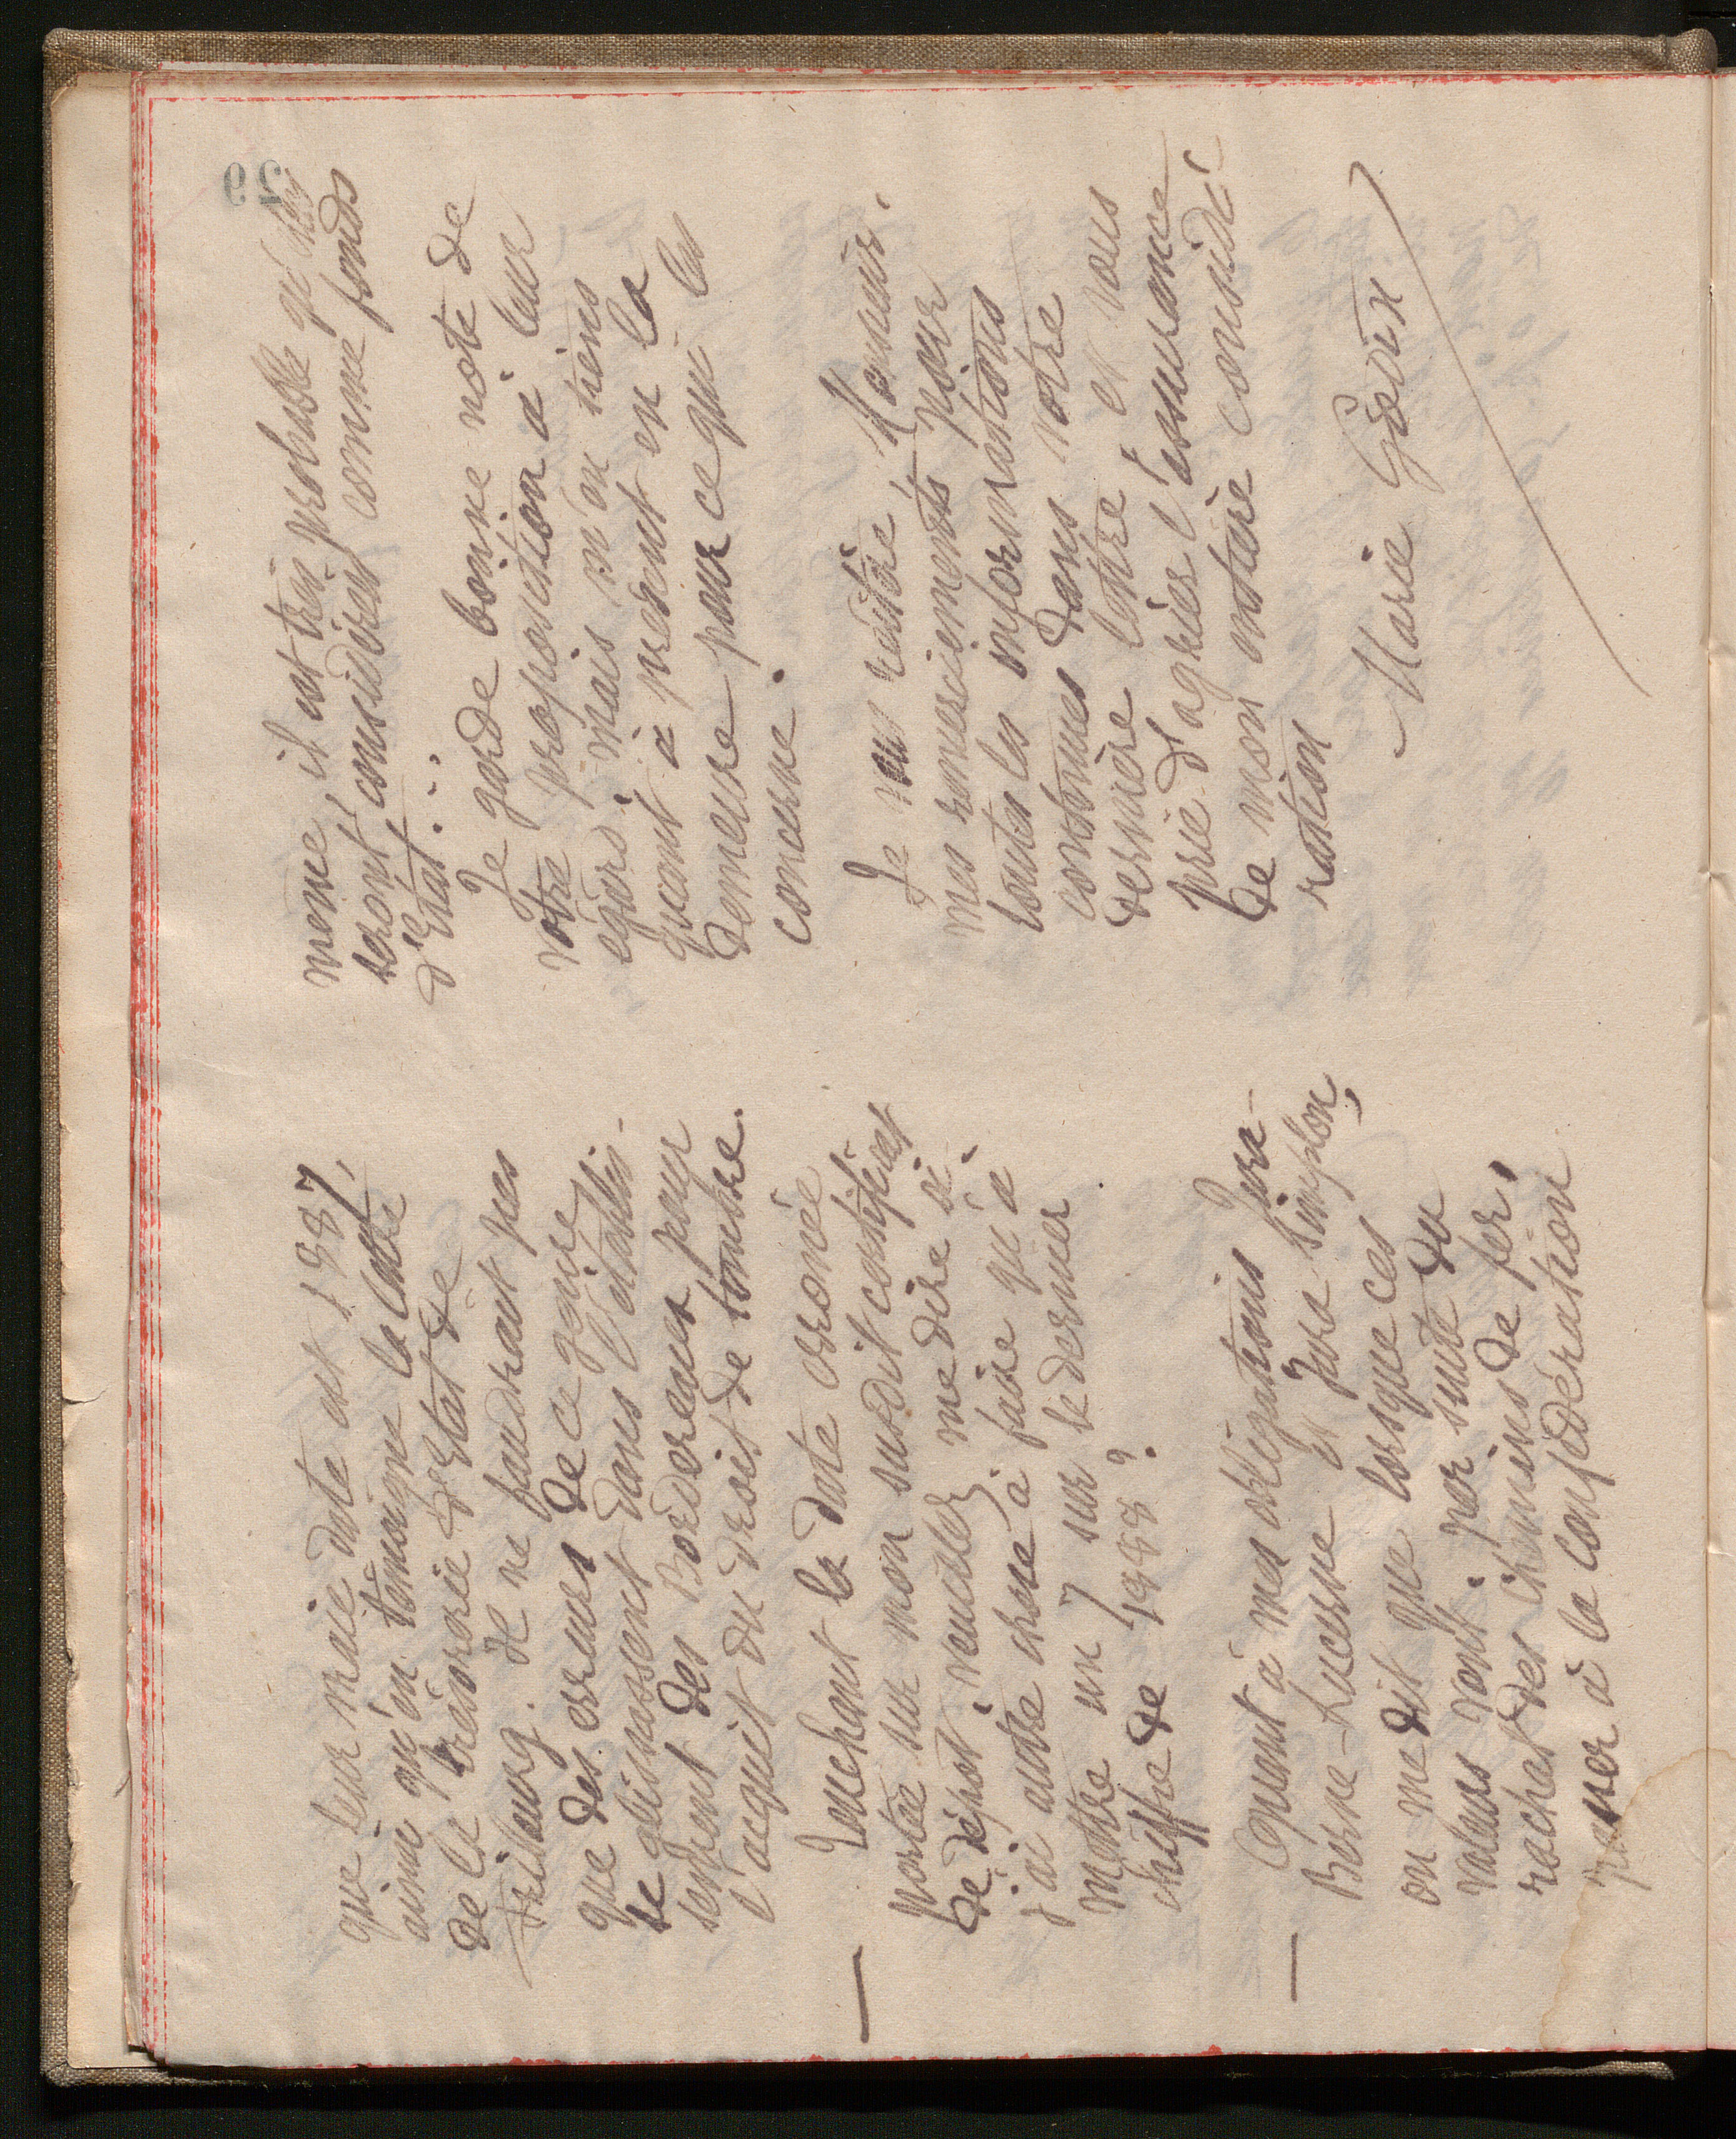 que leur vraie date est 1887,
ainsi qu'en témoigne la lettre
de la trésorerie d'Etat de
Fribourg. Il ne faudrait pas
que des erreurs de ce genre
se glissassent dans l'établis-
sement des Bordereaux pour
l'acquit du droit de timbre.
— Touchant la date erronée
portée sur mon susdit certificat
de dépôt, veuillez me dire si
j'ai autre chose à faire qu'à
mettre un 7 sur le dernier
chiffre de 1888 ?
— Quant à mes obligations Jura-
Berne-Lucerne et Jura Simplon,
on me dit que lorsque ces
valeurs vont, par suite du
rachat des chemins de fer,
passer à la Confédération
même, il est très probable qu'elles
seront considérées comme fonds
d'Etat...
Je garde bonne note de
votre proposition à leur
égard, mais m'en tiens
quant à présent en la
demeure pour ce qui les
concerne.
Je vous réitère, Monsieur,
mes remerciements pour
toutes les informations
contenues dans votre
dernière lettre, et vous
prie d'agréer l'assurance
de mon entière considé-
ration
Marie
29